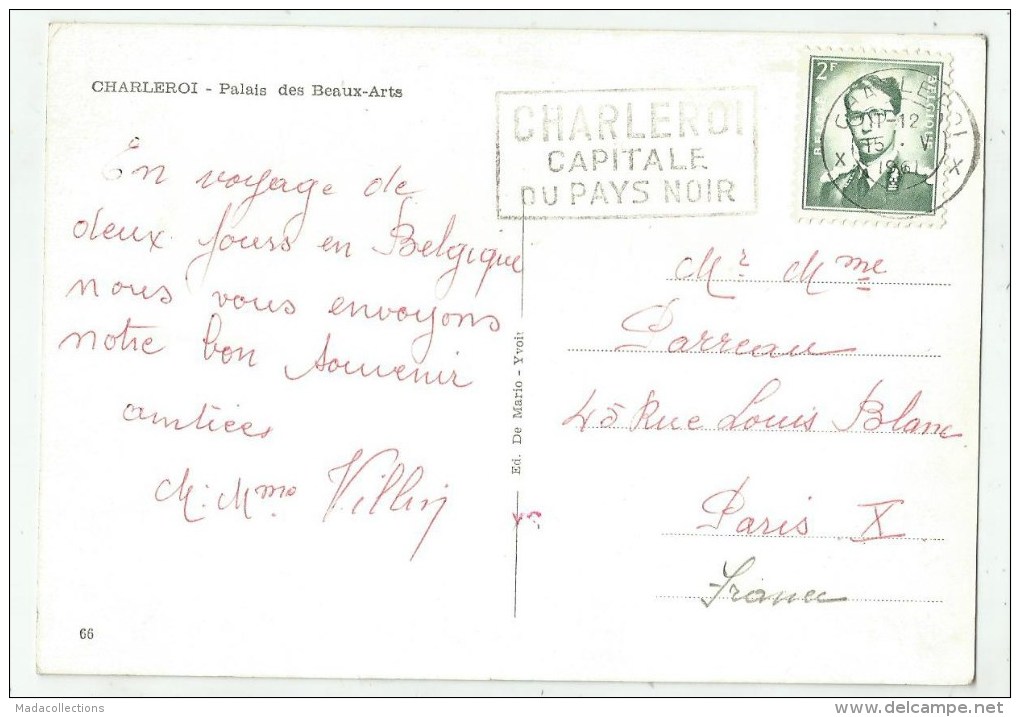 CHARLEROI - Palais des Beaux-Arts
En voyage de
deux jours en Belgique
nous vous envoyons
notre bon souvenir
amitiées
M. Mme
CHARLEROI
CAPITALE
DU PAYS NOIR
2F
CHARLEROI
11-12
15 . V
1961
X X
Mr Mme
Parreau
45 Rue Louis Blanc
Paris X
France
Ed. De Mario - Yvoit
66
Madacollections